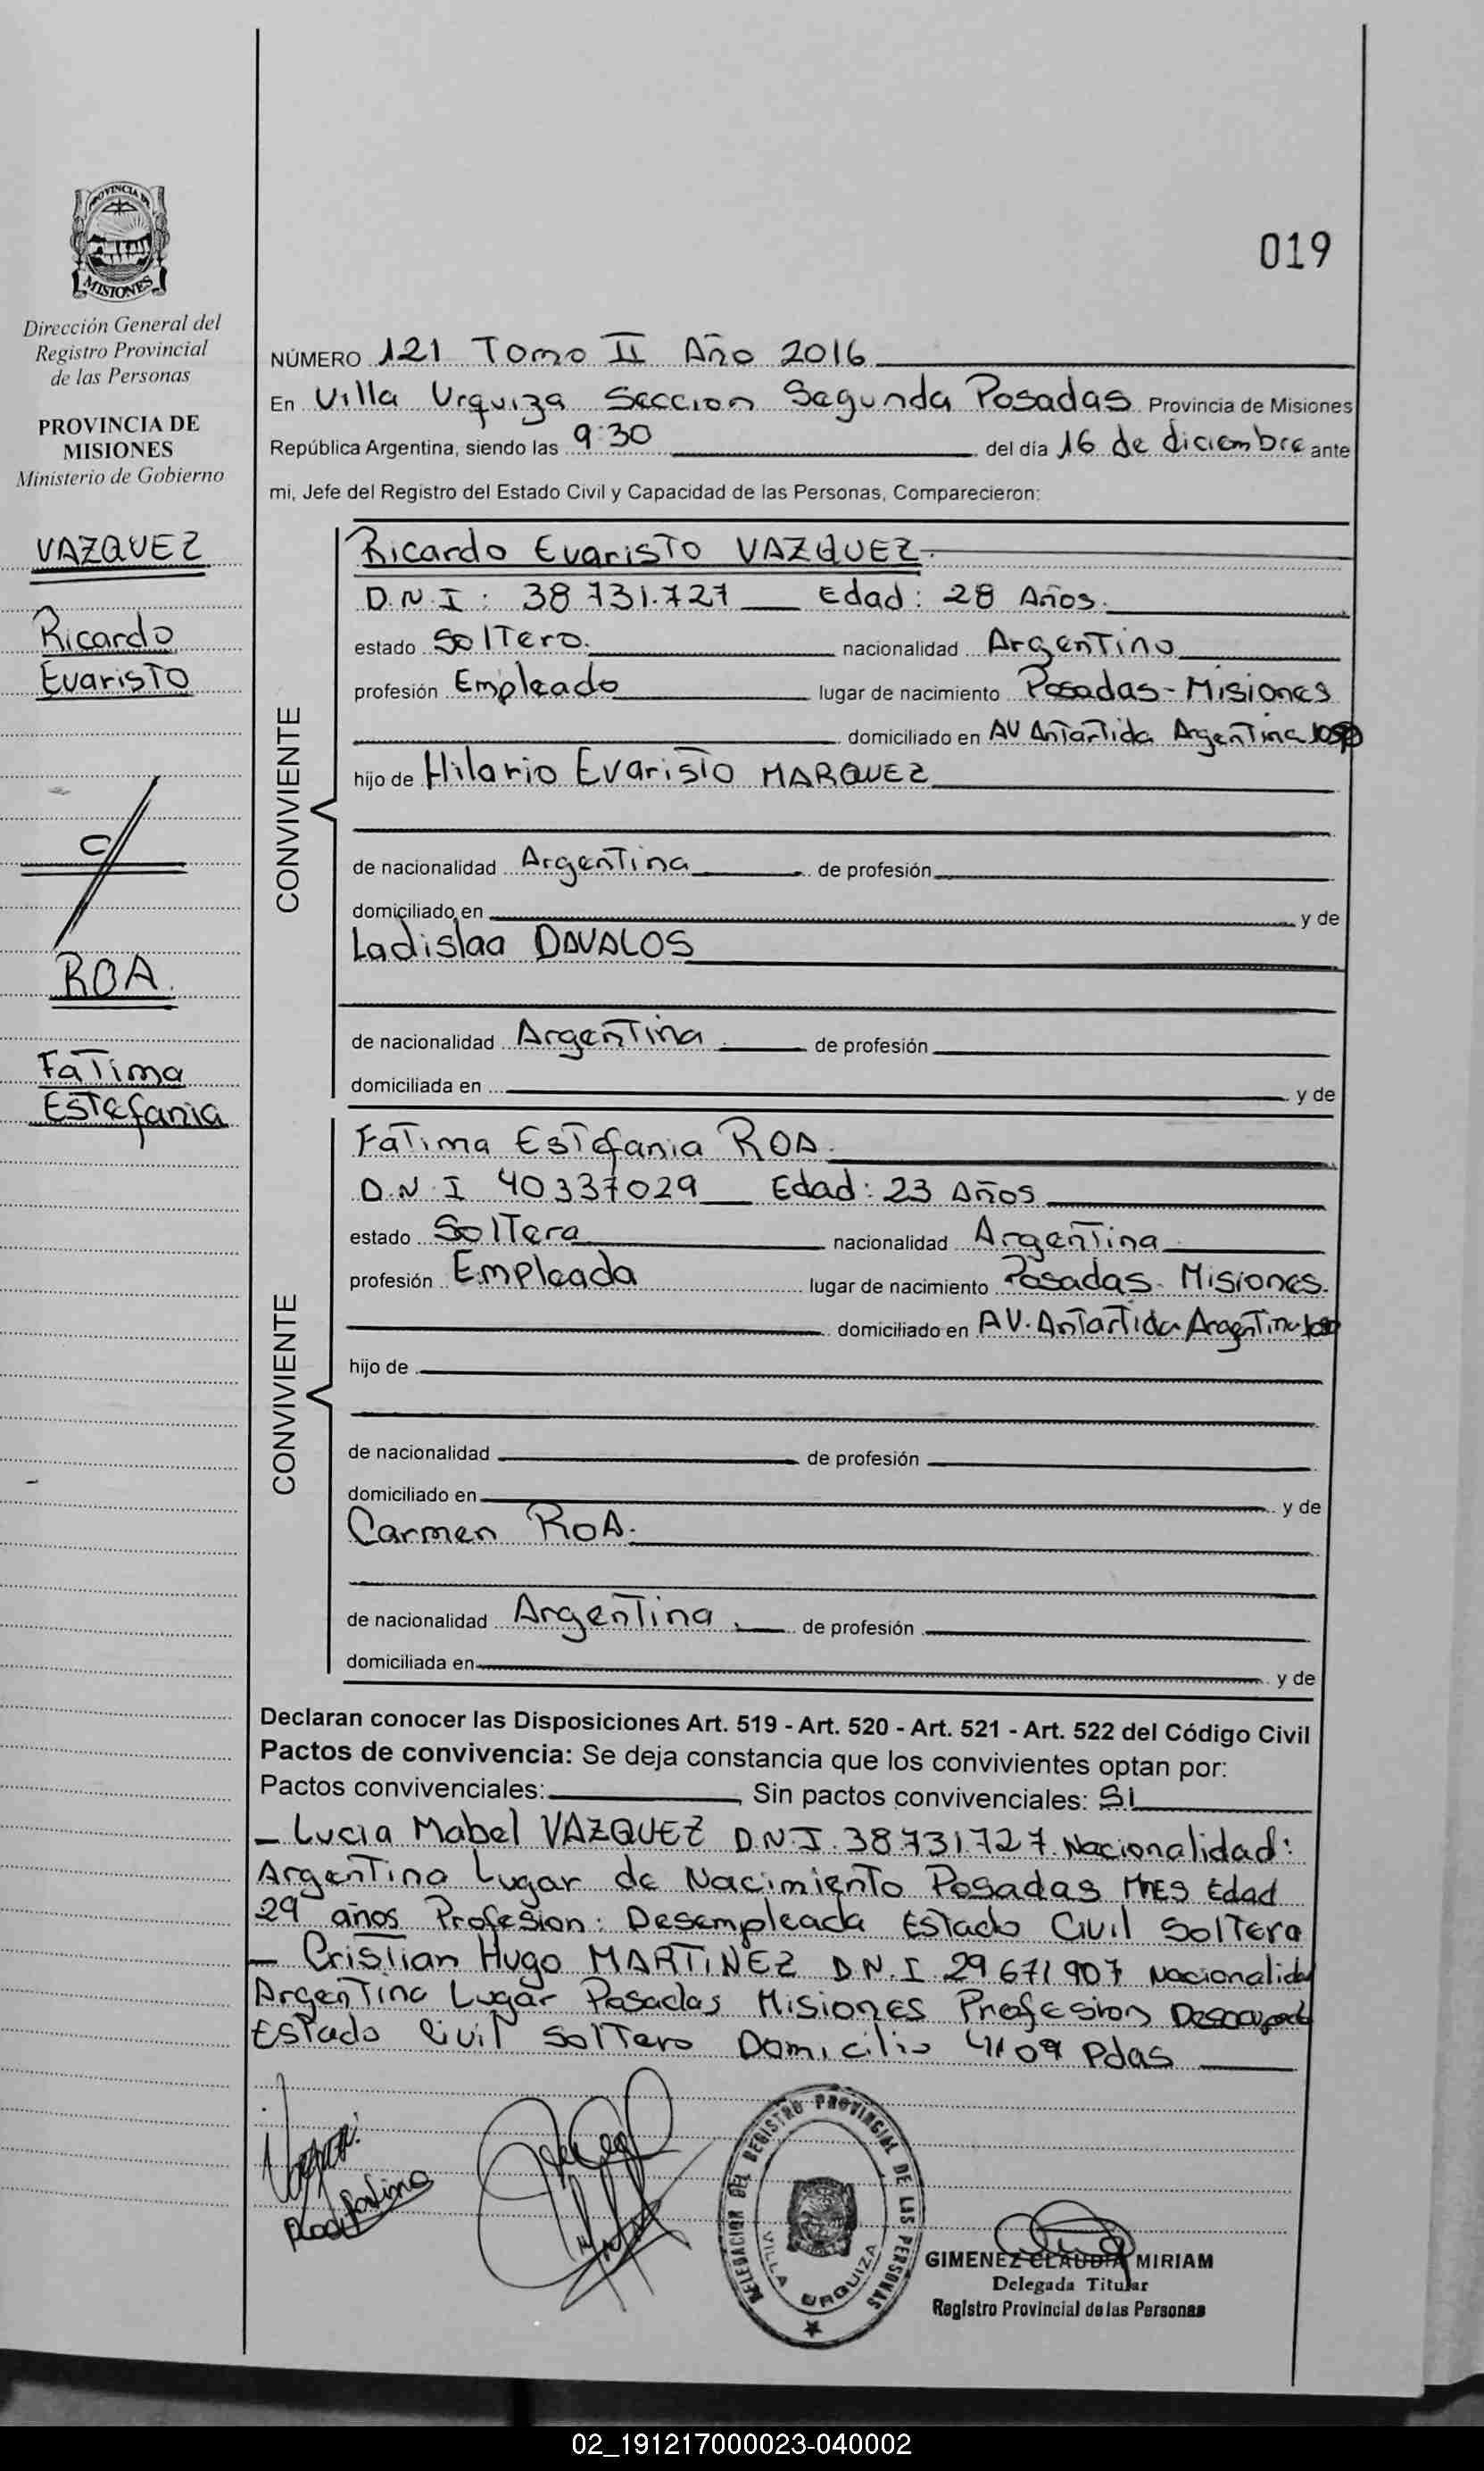 PROVINCIA DE
MISIONES
Dirección General del
Registro Provincial
de las Personas
PROVINCIA DE
MISIONES
Ministerio de Gobierno
VAZQUEZ
Ricardo
Evaristo
c/
ROA.
Fatima
Estefania
019
NÚMERO 121 Tomo II Año 2016
En Villa Urquiza Seccion Segunda Posadas Provincia de Misiones
República Argentina, siendo las 9:30 del día 16 de diciembre ante
mi, Jefe del Registro del Estado Civil y Capacidad de las Personas, Comparecieron:
CONVIVIENTE
Ricardo Evaristo VAZQUEZ.
D.N.I: 38.731.727 Edad: 28 Años.
estado Soltero. nacionalidad Argentino
profesión Empleado lugar de nacimiento Posadas-Misiones
domiciliado en AV Antartida Argentina
hijo de Hilario Evaristo MARQUEZ
de nacionalidad Argentina de profesión
domiciliado en y de
Ladislaa DAVALOS
de nacionalidad Argentina. de profesión
domiciliada en y de
CONVIVIENTE
Fatima Estefania ROA.
D.N.I 40337029 Edad: 23 Años
estado Soltera nacionalidad Argentina
profesión Empleada lugar de nacimiento Posadas-Misiones.
domiciliado en AV. Antartida Argentina
hijo de
de nacionalidad de profesión
domiciliado en y de
Carmen ROA.
de nacionalidad Argentina. de profesión
domiciliada en y de
Declaran conocer las Disposiciones Art. 519 - Art. 520 - Art. 521 - Art. 522 del Código Civil
Pactos de convivencia: Se deja constancia que los convivientes optan por:
Pactos convivenciales: , Sin pactos convivenciales: SI
- Lucia Mabel VAZQUEZ D.N.I. 38.731.727 Nacionalidad:
Argentina Lugar de Nacimiento Posadas Mnes Edad
29 años Profesion: Desempleada Estado Civil Soltera
- Cristian Hugo MARTINEZ D.N.I 29671907 Nacionalidad
Argentina Lugar Posadas Misiones Profesion
Estado Civil Soltero Domicilio 4109 Pdas
DELEGACION DEL REGISTRO PROVINCIAL DE LAS PERSONAS
VILLA URQUIZA
GIMENEZ CLAUDIA MIRIAM
Delegada Titular
Registro Provincial de las Personas
02_191217000023-040002